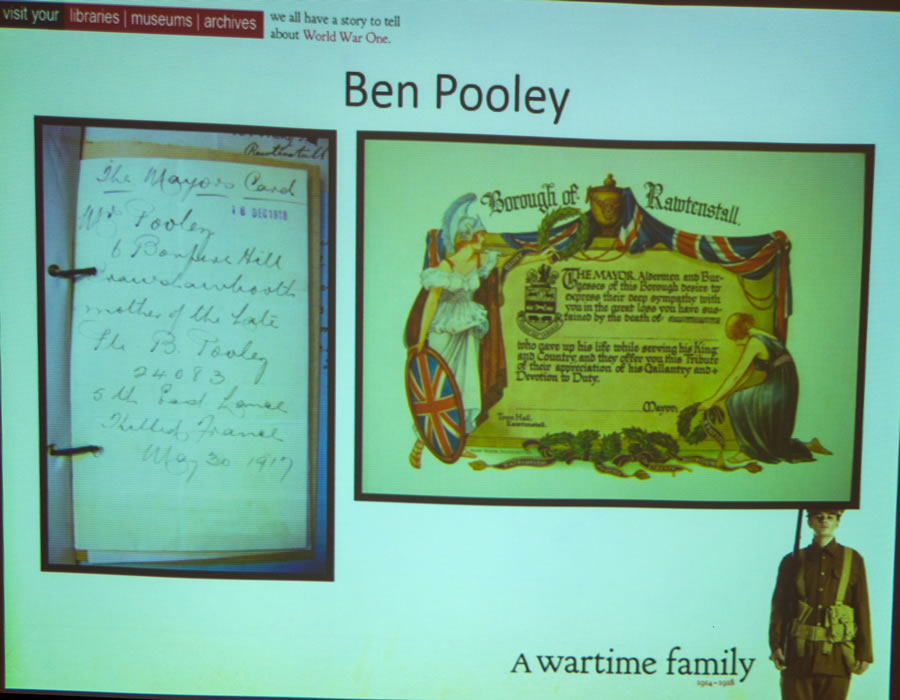 visit your libraries | museums | archives
we all have a story to tell
about World War One.
Ben Pooley
Rawtenstall
The Mayors Card
18 DEC 1918
Mrs Pooley
6 Bonfire Hill
Crawshawbooth
mother of the Late
Pte B. Pooley
24083
5th East Lancs
Killed France
May 30 1917
Borough of Rawtenstall.
THE MAYOR, Aldermen and Bur-
gesses of this Borough desire to
express their deep sympathy with
you in the great loss you have sus-
tained by the death of
who gave up his life while serving his King
and Country, and they offer you this Tribute
of their appreciation of his Gallantry and
Devotion to Duty.
Mayor.
Town Hall,
Rawtenstall.
A wartime family
1914-1918